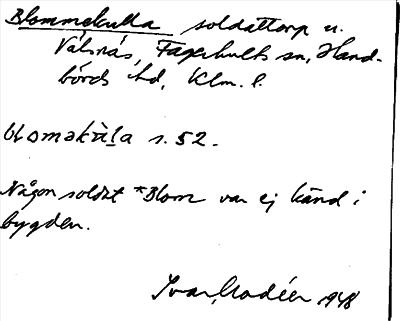 Blommekulla soldattorp u.
Välsnäs, Fagerhults sn, Hand-
börds hd, Klm. l.
blomekùl̥a s. 52.
Någon soldat *Blom var ej känd i
bygden.
Ivar Modéer 1948